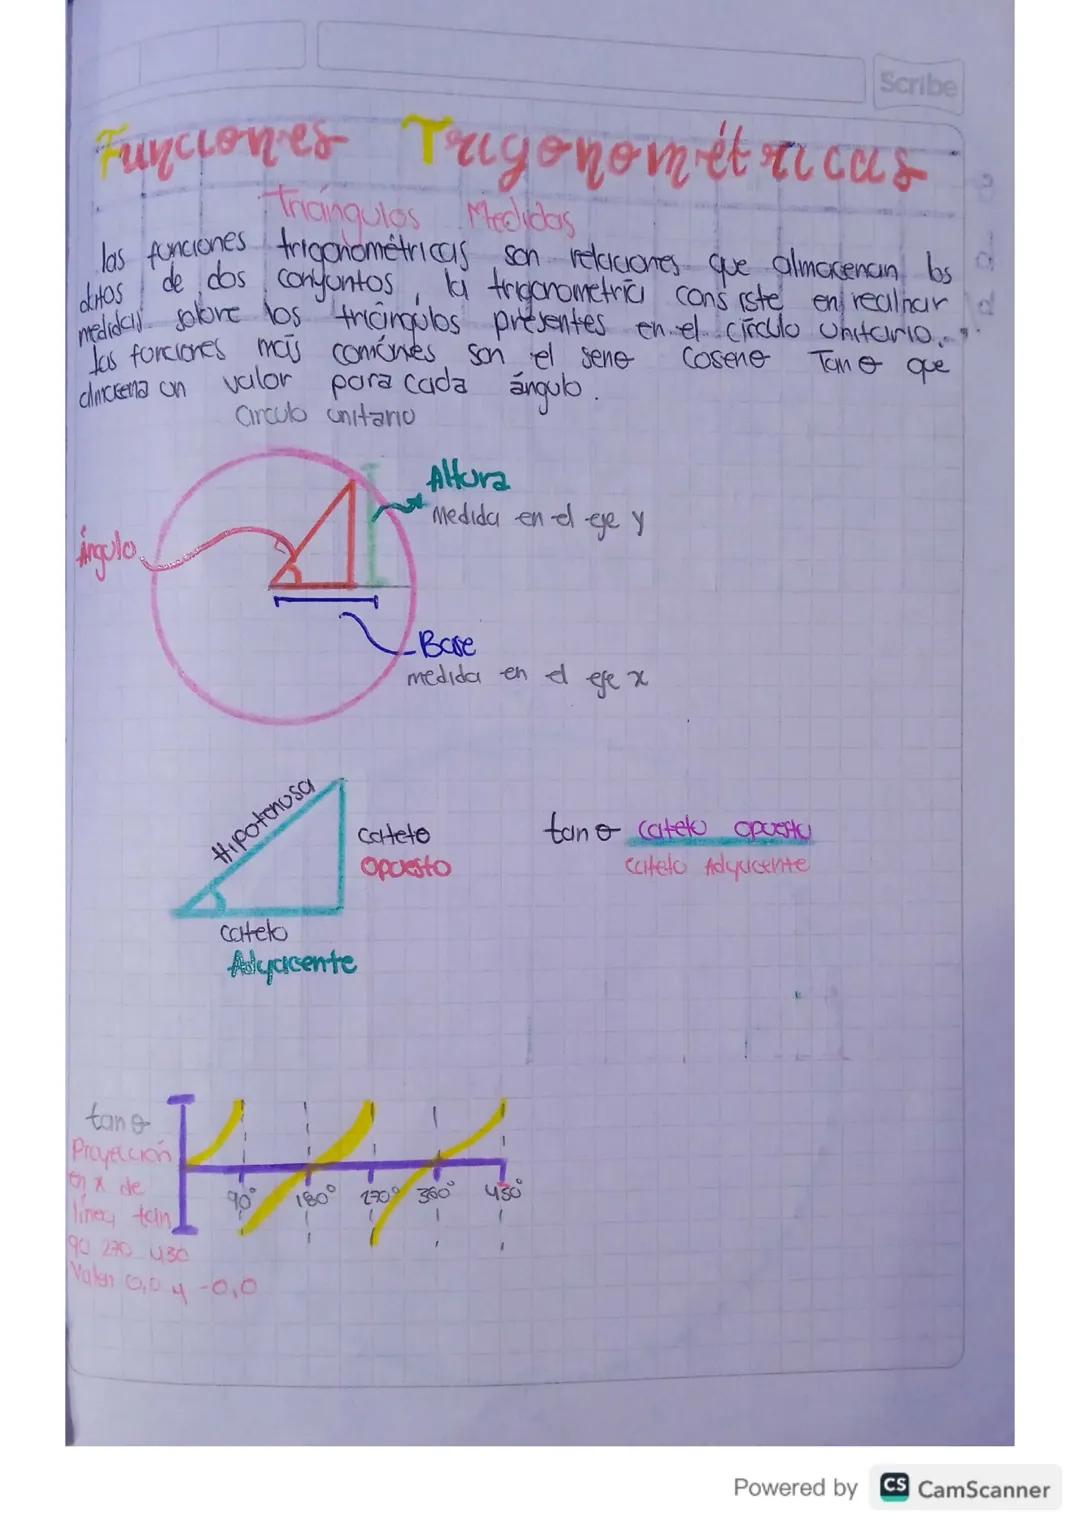 Scribe
Funciones Trigonométricas
Triángulos Medidas
las funciones trigonométricas son relaciones que almacenan los
datos de dos conjuntos, la trigonometria consiste en realhar
medidas sobre los triángulos presentes en el círculo unitario.
las funciones más comúnes son el seno coseno Tan θ que
un valor para cada ángulo.
Circulo unitario
Altura
Medida en el eje y
Ángulo
Base
medida en el eje x
Hipotenusa
cateto
opuesto
tan θ cateto opuesto
cateto Adyacente
cateto
Adyacente
tan θ
Proyección
en x de
línea tan
90 270 430
Valen 0,0 y -0,0
90° 180° 270° 360° 430°
Powered by CS CamScanner